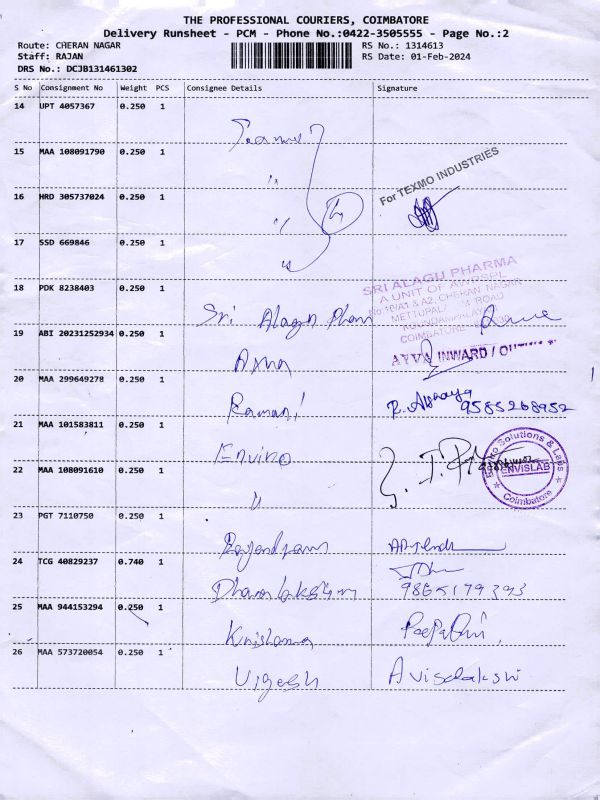 THE PROFESSIONAL COURIERS, COIMBATORE
Delivery Runsheet - PCM - Phone No.:0422-3505555 - Page No.:2
Route: CHERAN NAGAR
RS No.: 1314613
Staff: RAJAN
RS Date: 01-Feb-2024
DRS No.: DCJB131461302
S No Consignment No Weight PCS Consignee Details Signature
14 UPT 4057367 0.250 1
15 MAA 108091790 0.250 1
For TEXMO INDUSTRIES
16 HRD 305737024 0.250 1
17 SSD 669846 0.250 1
SRI ALAGU PHARMA
A UNIT OF AWPSPL
No.10/A1 & A2, CHERAN NAGAR
18 PDK 8238403 0.250 1 Sri Alagu Pham
19 ABI 20231252934 0.250 1
INWARD /
20 MAA 299649278 0.250 1 Ramani
9585268952
21 MAA 101583811 0.250 1 Enviro
Enviro Solutions & Labs
ENViSLAB
Coimbatore
22 MAA 108091610 0.250 1 "
23 PGT 7110750 0.250 1 Rajendran
24 TCG 40829237 0.740 1 Dhanalakshmi
9865179393
25 MAA 944153294 0.250 1 Krishana
26 MAA 573720054 0.250 1 Vigesh A visalakshi